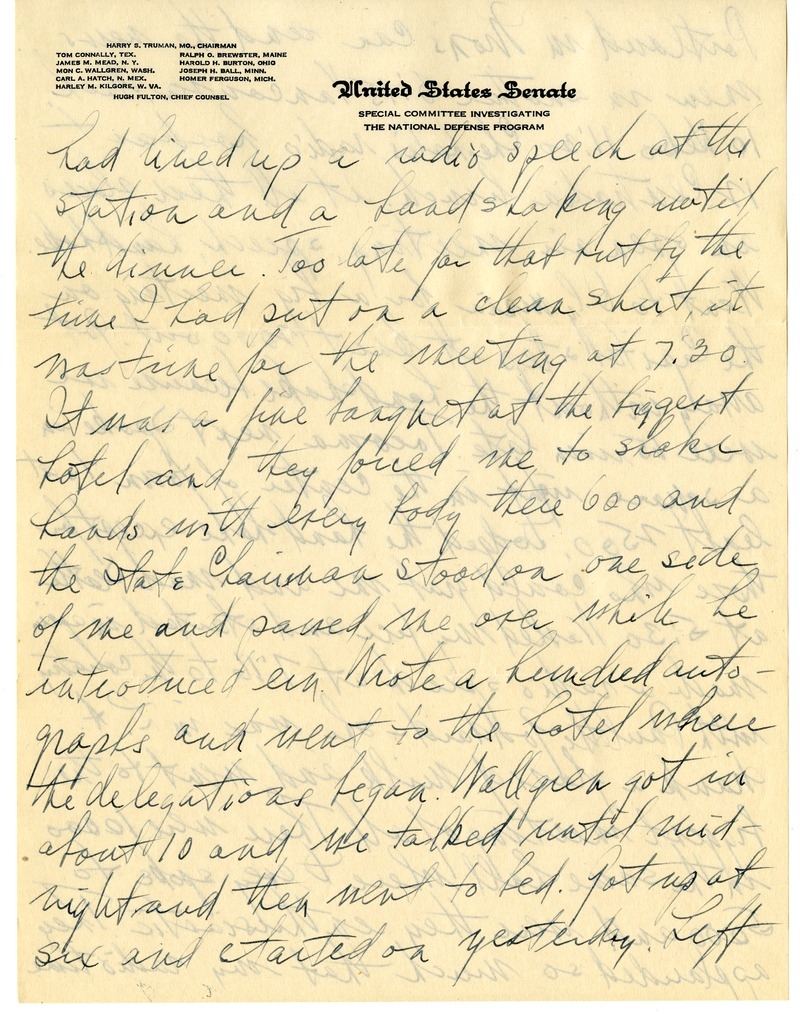 HARRY S. TRUMAN, MO., CHAIRMAN
TOM CONNALLY, TEX. RALPH O. BREWSTER, MAINE
JAMES M. MEAD, N. Y. HAROLD H. BURTON, OHIO
MON C. WALLGREN, WASH. JOSEPH H. BALL, MINN.
CARL A. HATCH, N. MEX. HOMER FERGUSON, MICH.
HARLEY M. KILGORE, W. VA.
HUGH FULTON, CHIEF COUNSEL
United States Senate
SPECIAL COMMITTEE INVESTIGATING
THE NATIONAL DEFENSE PROGRAM
had lined up a radio speech at the
station and a handshaking until
the dinner. Too late for that but by the
time I had put on a clean shirt, it
was time for the meeting at 7:30.
It was a fine banquet at the biggest
hotel and they forced me to shake
hands with every body there 600 and
the State Chairman stood on one side
of me and passed me over while he
introduced em. Wrote a hundred auto-
graphs and went to the hotel where
the delegations began. Wallgren got in
about 10 and we talked until mid-
night and then went to bed. Got up at
six and started on yesterday. Left